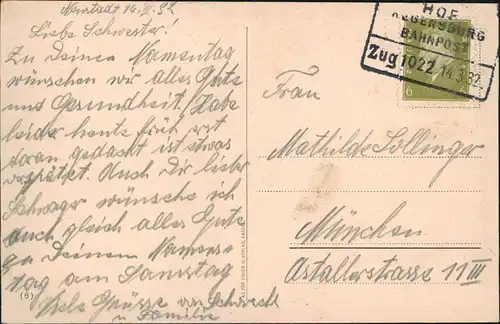 Neustadt 14.III.32
Liebe Schwester!
Zu Deinem Namenstag
wünschen wir alles Gute
und Gesundheit! Habe
leider heute früh erst
daran gedacht ist etwas
verspätet. Auch Dir lieber
Schwager wünsche ich
auch gleich alles Gute
zu Deinem Namens-
tag am Samstag
Viele Grüsse von
u Familie
(6)
HOF
REGENSBURG
BAHNPOST
Zug 1022 14.3.32
6
Frau
Mathilde Lollinger
München
Astallerstrasse 11 III